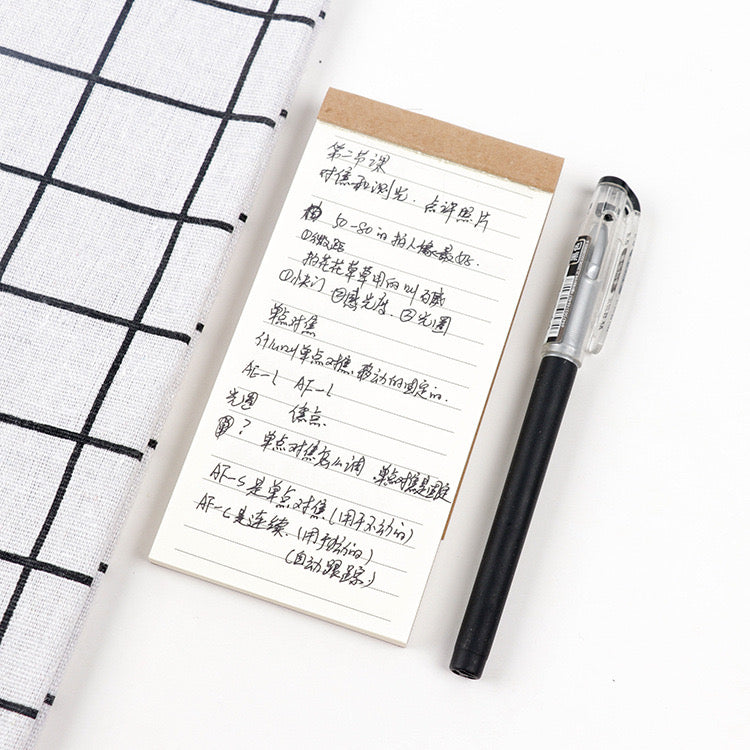 第二节课
对焦和测光. 点评照片
50-80的拍人像最好.
①微距
拍花花草草用的叫百微
①快门 ②感光度. ③光圈
单点对焦
什么时单点对焦. 移动的固定的.
AE-L AF-L
光圈 焦点.
? 单点对焦怎么调 单点对焦是固定
AF-S是单点对焦.(用于不动的)
AF-C是连续.(用于动的)
(自动跟踪)